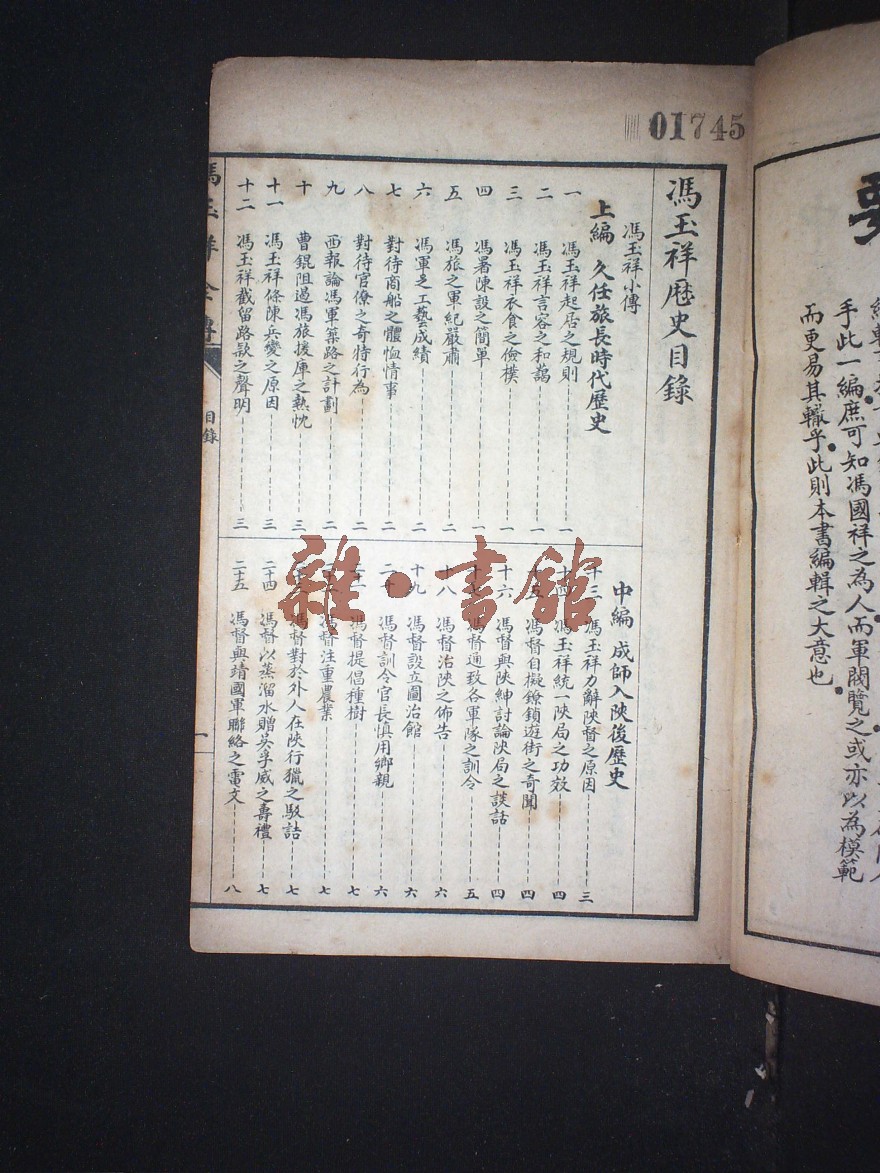 要
手此一編庶可知馮國祥之為人而軍閥覽之或亦以為模範
而更易其轍乎此則本書編輯之大意也
01745
馮玉祥歷史目錄
馮玉祥小傳
上編 久任旅長時代歷史
一 馮玉祥起居之規則 一
二 馮玉祥言容之和藹 一
三 馮玉祥衣食之儉樸 一
四 馮署陳設之簡單 一
五 馮旅之軍紀嚴肅 二
六 馮軍之工藝成績 二
七 對待商船之體恤情事 二
八 對待官僚之奇特行為 二
九 西報論馮軍築路之計劃 二
十 曹錕阻過馮旅援庫之熱忱 三
十一 馮玉祥條陳兵變之原因 三
十二 馮玉祥截留路款之聲明 三
中編 成師入陝後歷史
十三 馮玉祥力辭陝督之原因 三
十四 馮玉祥統一陝局之功效 四
馮督自擬鐐鎖遊街之奇聞 四
十六 馮督與陝紳討論陝局之談話 四
馮督通致各軍隊之訓令 五
十八 馮督治陝之佈告 六
十九 馮督設立圖治館 六
二十 馮督訓令官長慎用鄉親 六
馮督提倡種樹 七
馮督注重農業 七
馮督對於外人在陝行獵之駁詰 七
二十四 馮督以蒸溜水贈吳孚威之壽禮 七
二十五 馮督與靖國軍聯絡之電文 八
馮玉祥全傳
目錄
一
雜·書館